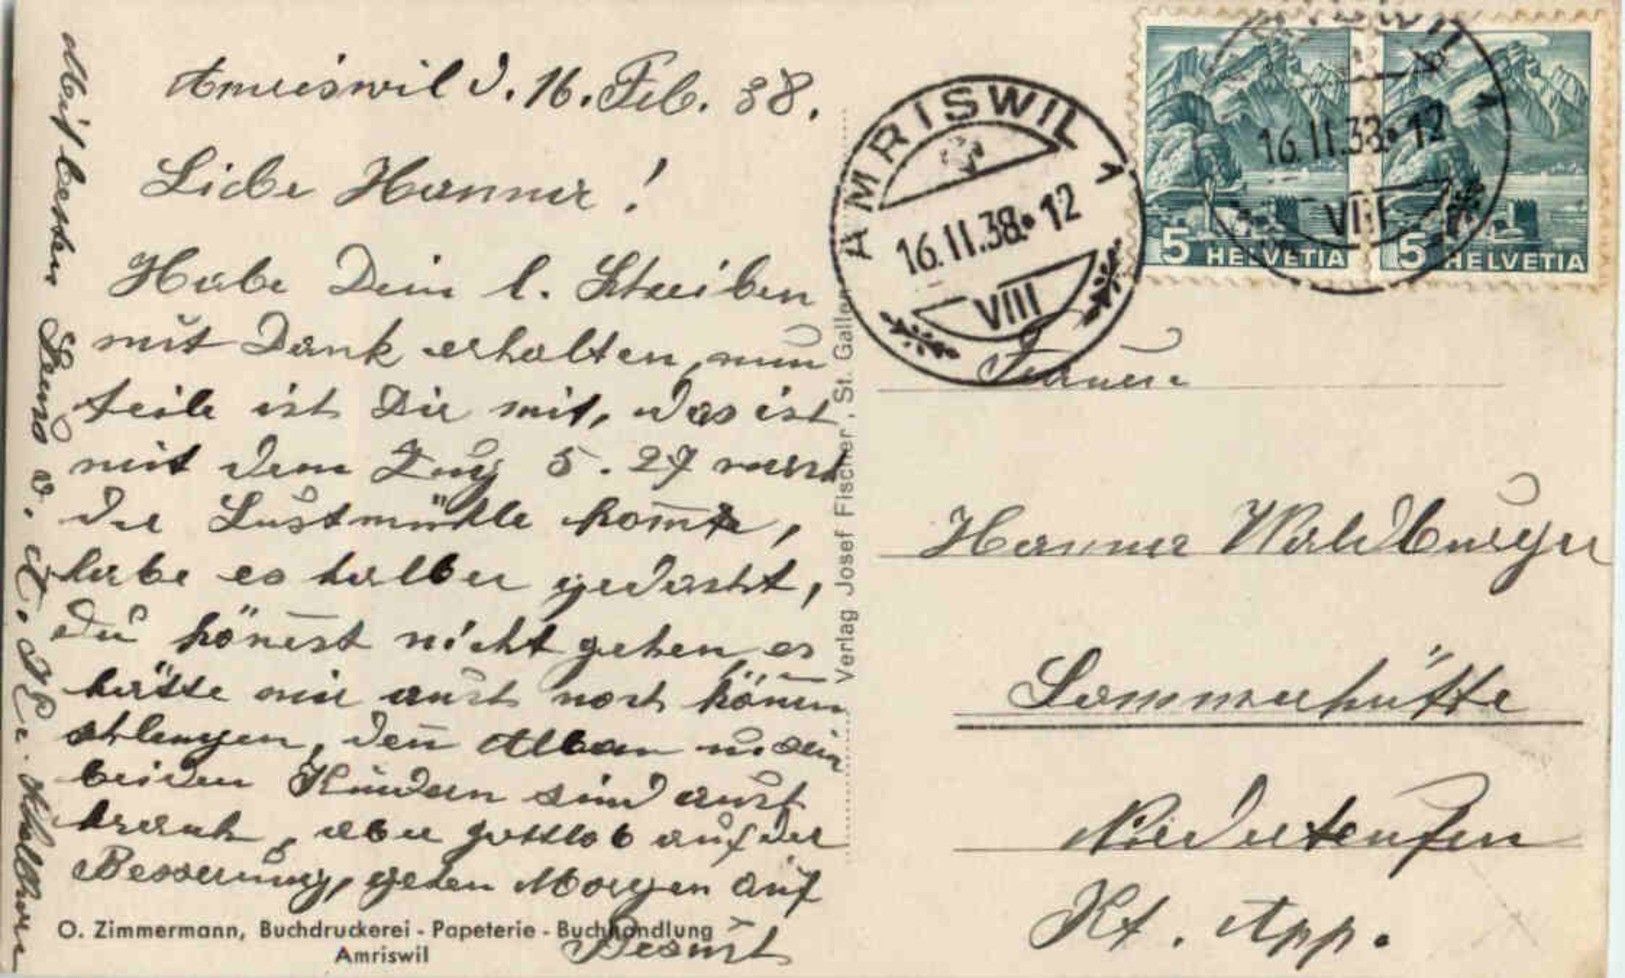 Amriswil d. 16. Feb. 38.
Liebe Hanner!
Habe Dein l. Schreiben
mit Dank erhalten, nun
teile ich Dir mit, das ich
mit dem Zug 5.27 nach
der Lustmühle kome,
habe es halber gedacht,
Du könest nicht gehen, es
hätte mir auch noch könen
, den Alban u. die
beiden Kindern sind auch
krank, aber gottlob auf der
Besserung, gehen Morgen auf
Besuch
Mit besten Gruss a. d.
AMRISWIL 1
16.II.38.12
VIII
16.II.38.12
VIII
5 HELVETIA
5 HELVETIA
Verlag Josef Fischer, St. Gallen
Hanner Waldburger
Sommerhütte
Niederteufen
Kt. App.
O. Zimmermann, Buchdruckerei - Papeterie - Buchhandlung
Amriswil